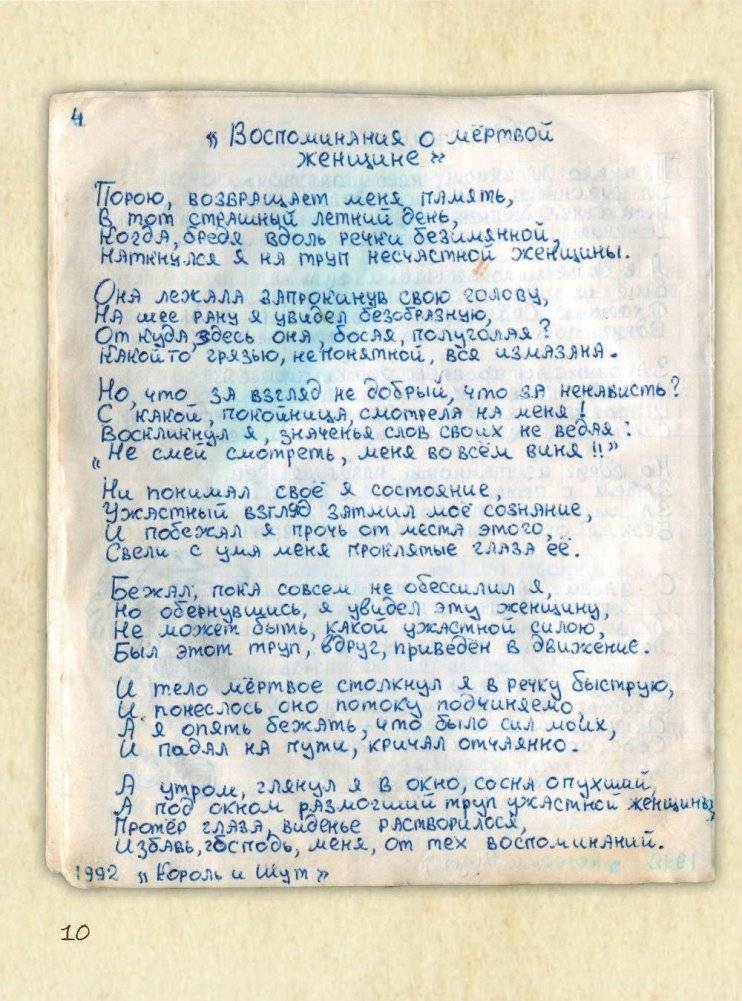 4
« Воспоминания о мёртвой
женщине »
Порою, возвращает меня память,
В тот страшный летний день,
Когда, бредя вдоль речки безимянной,
Наткнулся я на труп несчастной женщины.
Она лежала запрокинув свою голову,
На шее рану я увидел безобразную,
От куда, здесь она, босая, полуголая?
Какой то грязью, непонятной, вся измазана.
Но, что за взгляд не добрый, что за ненависть?
С какой, покойница, смотрела на меня!
Воскликнул я, значенья слов своих не ведая:
"Не смей смотреть, меня во всём виня!!"
Ни понимал своё я состояние,
Ужастный взгляд затмил моё сознание,
И побежал я прочь от места этого,
Свели с ума меня проклятые глаза её.
Бежал, пока совсем не обессилил я,
Но обернувшись, я увидел эту женщину,
Не может быть, какой ужастной силою,
Был этот труп, вдруг, приведён в движение.
И тело мёртвое столкнул я в речку быструю,
И понеслось оно потоку подчиняемо,
А я опять бежать, что было сил моих,
И падал на пути, кричал отчаянно.
А утром, глянул я в окно, со сна опухший,
А под окном размогший труп ужастной женщины,
Протёр глаза, виденье растворилося,
Избавь, господь, меня, от тех воспоминаний.
1992 « Король и Шут »
10